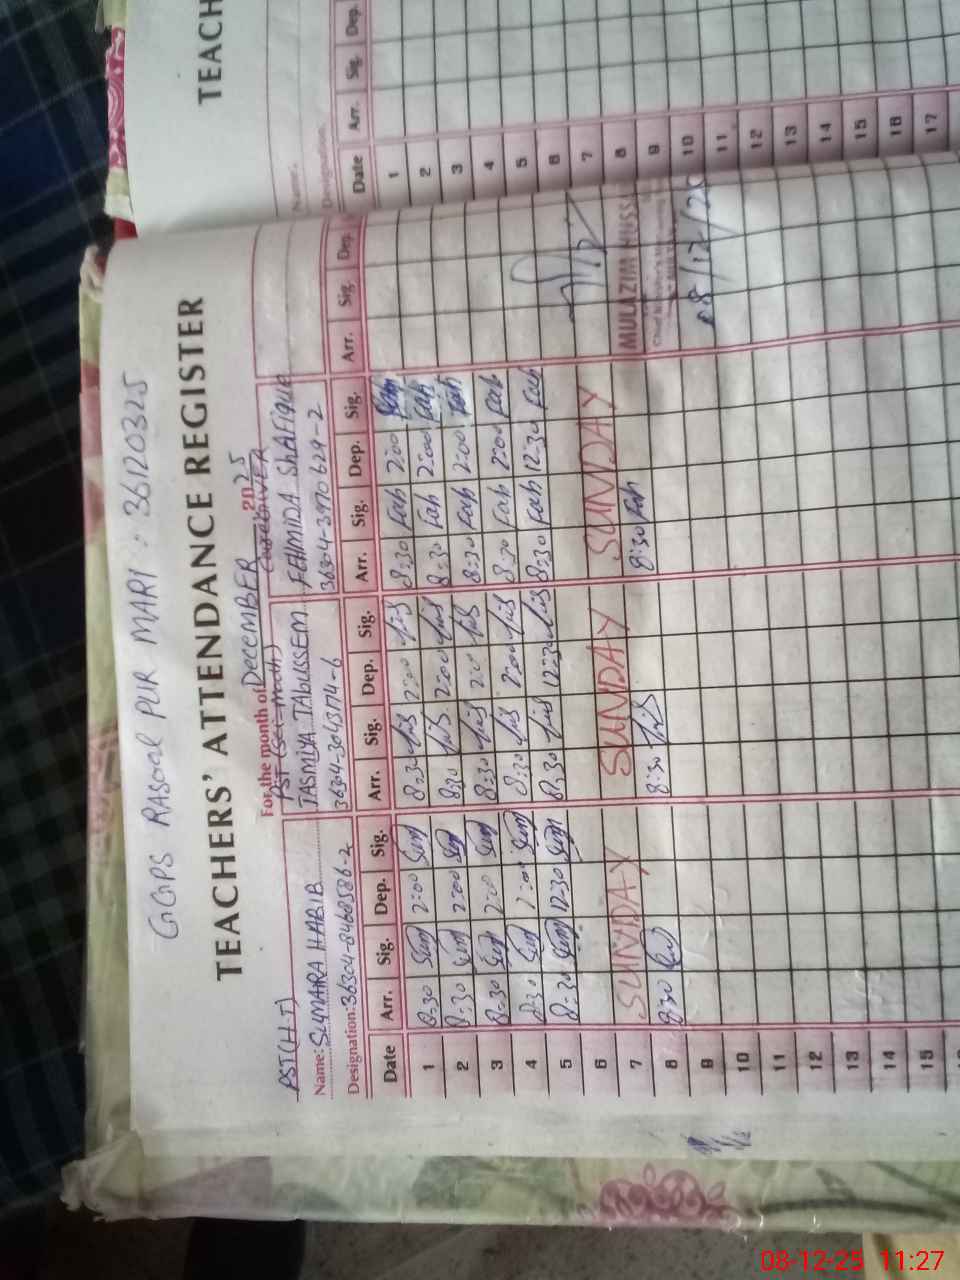 GGPS RASOOL PUR MARI : 36120325
TEACHERS' ATTENDANCE REGISTER
For the month of DECEMBER 2025
PST(H.T) PST (Sci-Math) Caregiver
Name: SUMAIRA HABIB TASMIYA TABUSSEM FEHMIDA SHAFIQUE
Designation: 36304-8468586-2 36304-3043174-6 36304-3970629-2
Date Arr. Sig. Dep. Sig. Arr. Sig. Dep. Sig. Arr. Sig. Dep. Sig. Arr. Sig. Dep.
1 8:30 Sum 2:00 Sum 8:30 Tas 2:00 Tas 8:30 Fah 2:00 Fah
2 8:30 Sum 2:00 Sum 8:30 Tas 2:00 Tas 8:30 Fah 2:00 Fah
3 8:30 Sum 2:00 Sum 8:30 Tas 2:00 Tas 8:30 Fah 2:00 Fah
4 8:30 Sum 2:00 Sum 8:30 Tas 2:00 Tas 8:30 Fah 2:00 Fah
5 8:30 Sum 12:30 Sum 8:30 Tas 12:30 Tas 8:30 Fah 12:30 Fah
6
7 SUNDAY SUNDAY SUNDAY
8 8:30 Sum 8:30 Tas 8:30 Fah
9
10
11
12
13
14
15
MULAZIM HUSS
08/12/25
TEACH
Name.
Designation.
Date Arr. Sig. Dep.
1
2
3
4
5
6
7
8
9
10
11
12
13
14
15
16
17
08-12-25 11:27